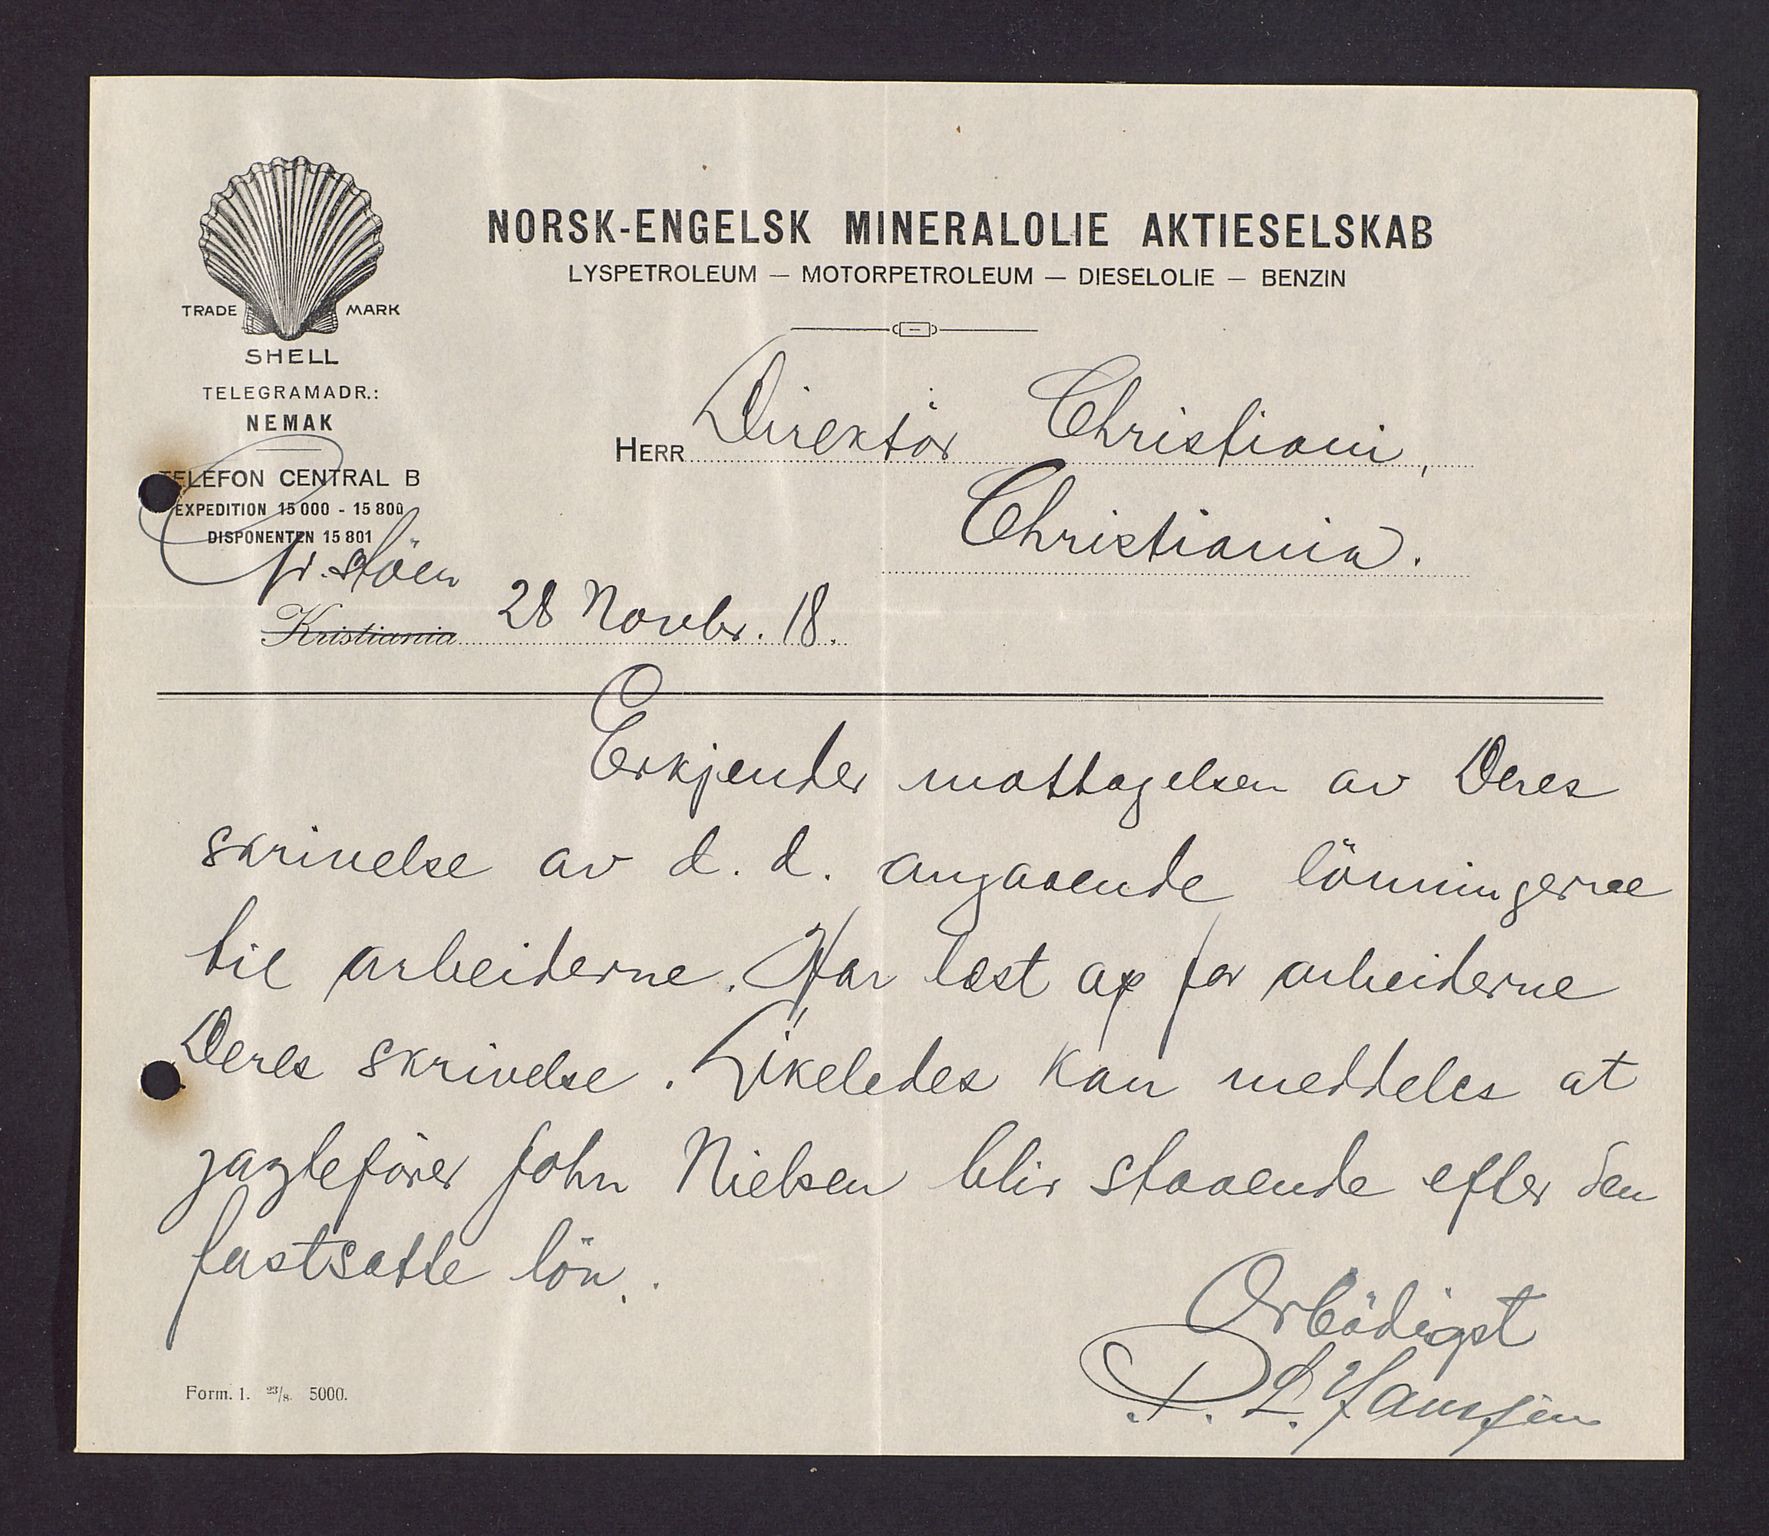 NORSK-ENGELSK MINERALOLIE AKTIESELSKAB
LYSPETROLEUM — MOTORPETROLEUM — DIESELOLIE — BENZIN
TRADE MARK
SHELL
TELEGRAMADR.:
NEMAK
TELEFON CENTRAL B
EXPEDITION 15 000 - 15 800
DISPONENTEN 15 801
HERR Direktör Christiani,
Christiania.
Kristiania 28 Novbr. 18.
Erkjender mottagelsen av Deres
skrivelse av d. d. angaaende lönningerne
til arbeiderne. Har læst op for arbeiderne
Deres skrivelse. Likeledes kan meddeles at
jagtefören John Nielsen blir staaende efter den
fastsatte lön.
Ærbödigst
P. L. Hanssen
Form. 1. 23/8. 5000.